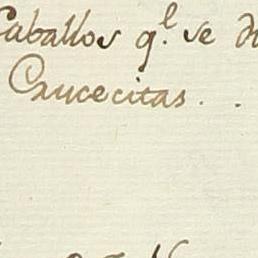 Caballos q.^e se
Crucecitas. .